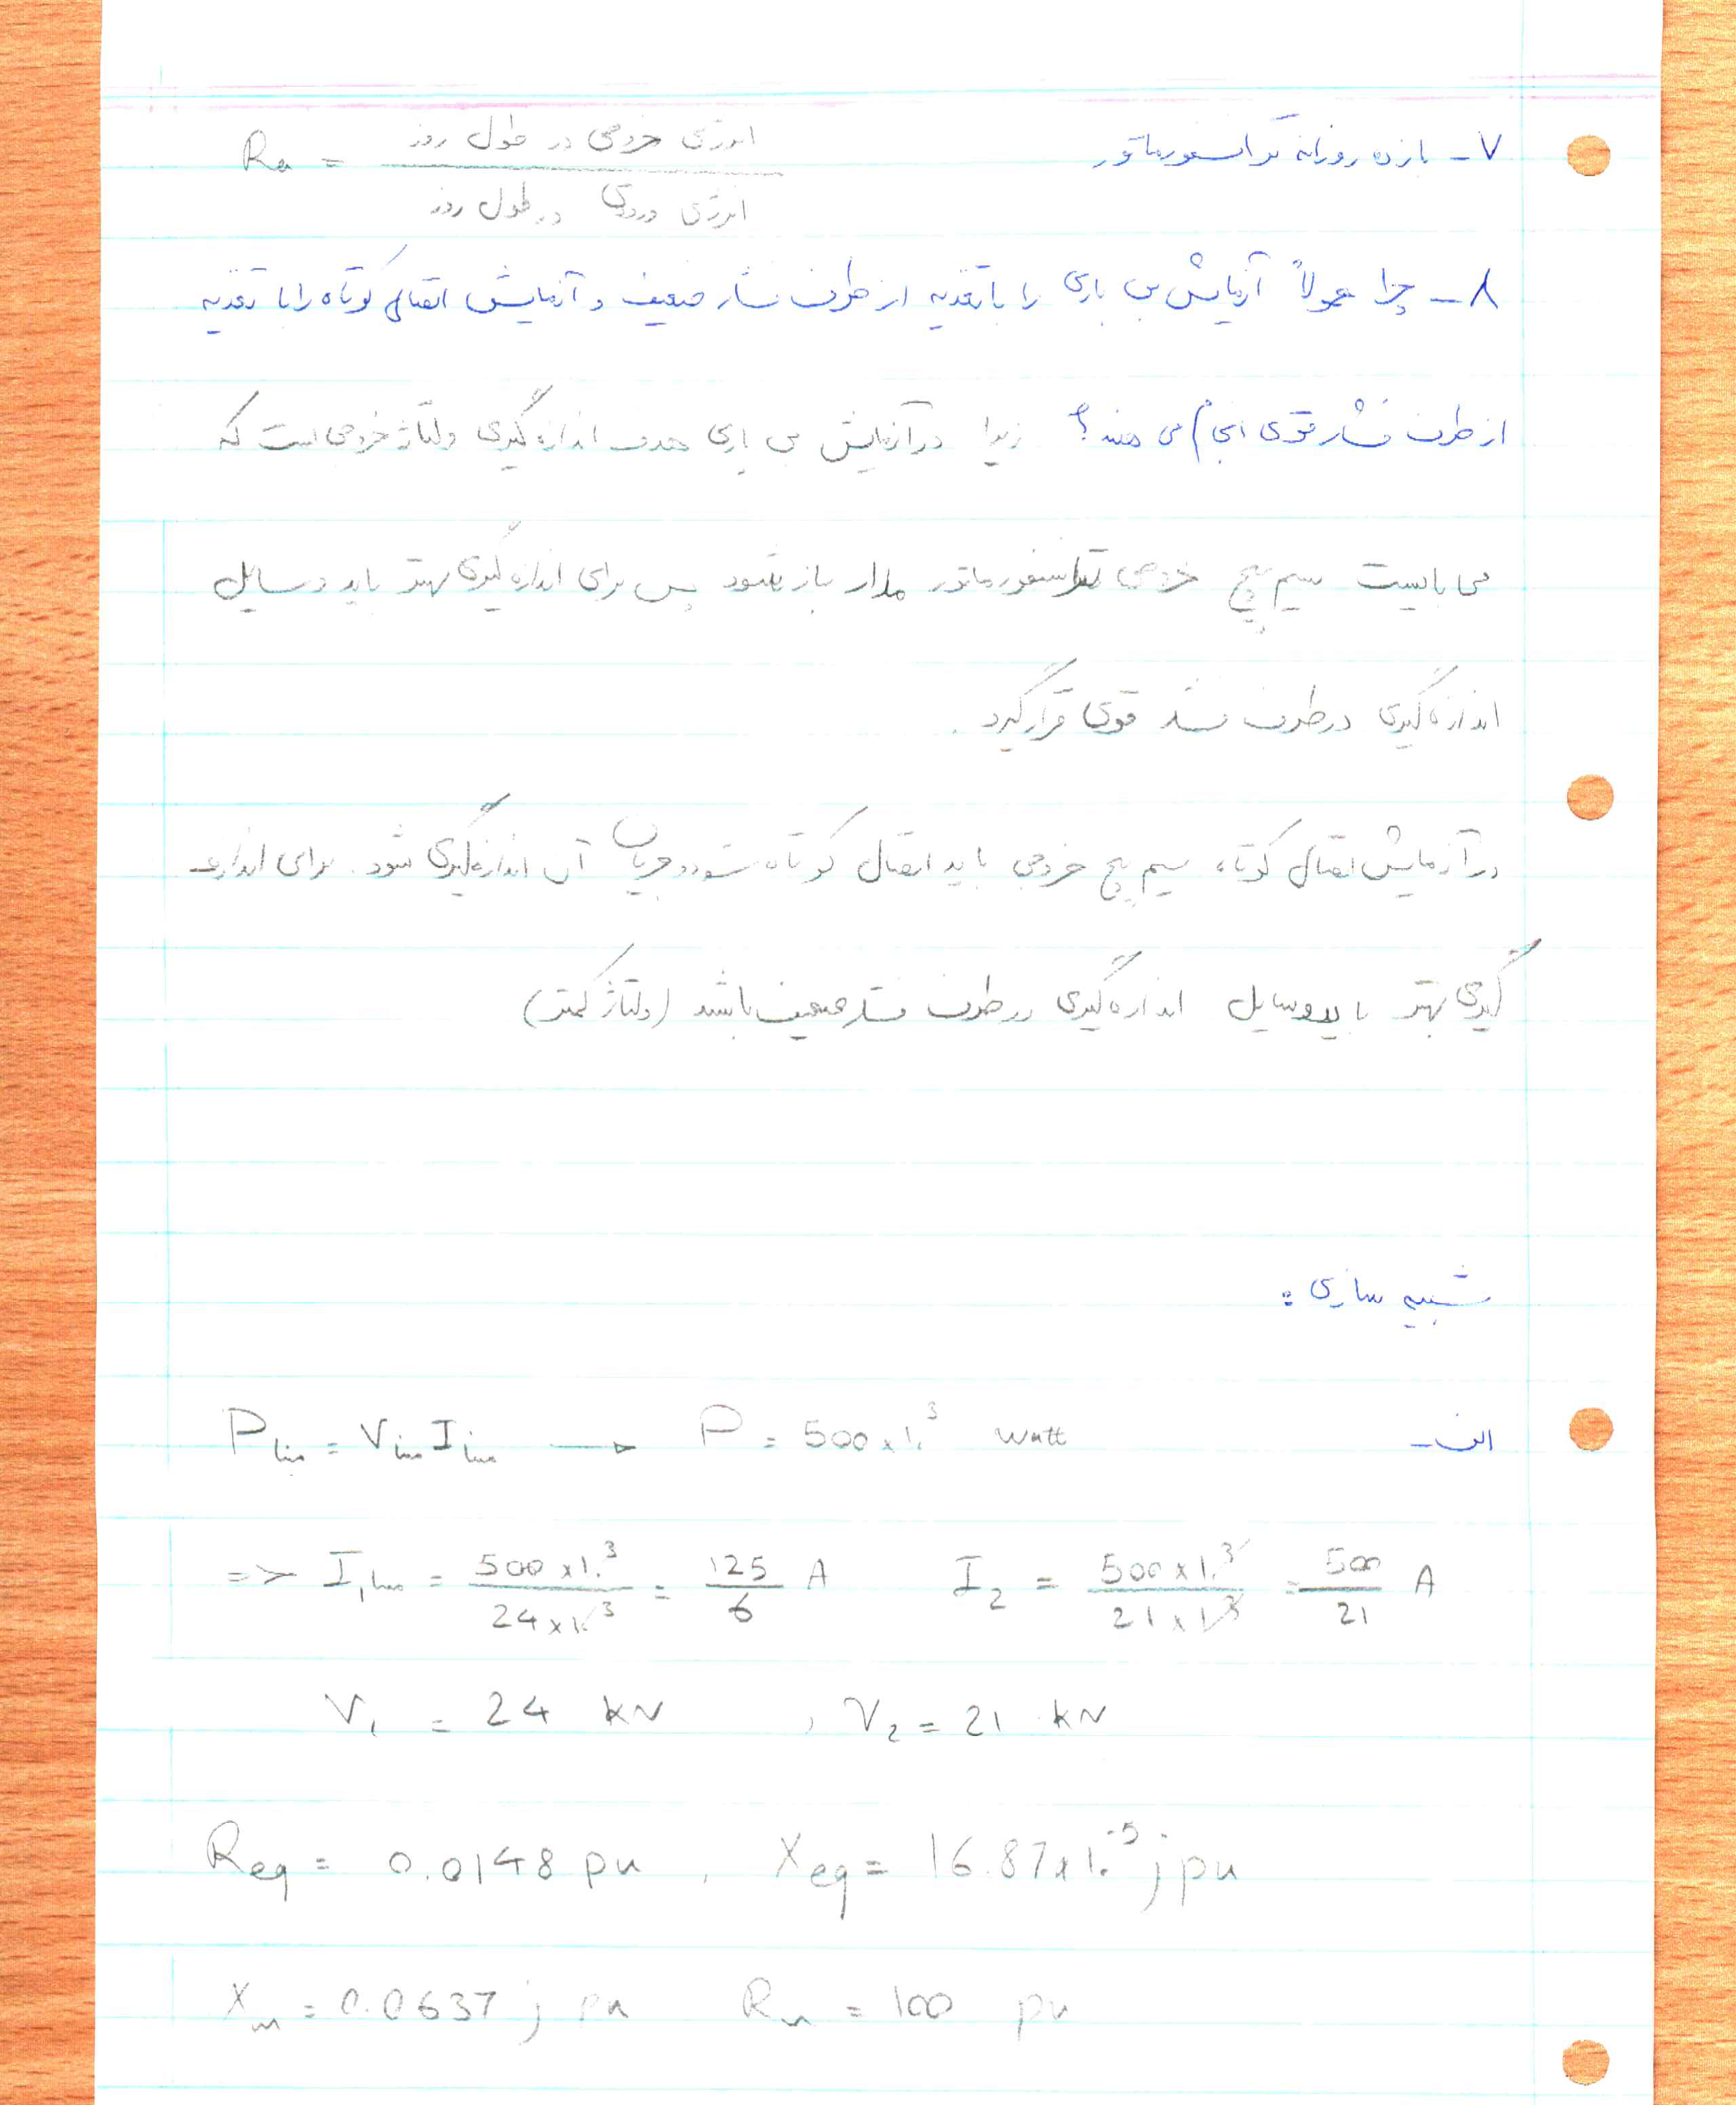 ۷- بازده روزانه ترانسفورماتور
Ra = انرژی خروجی در طول روز / انرژی ورودی در طول روز
۸- چرا معمولاً آزمایش بی باری را با تغذیه از طرف فشار ضعیف و آزمایش اتصال کوتاه را با تغذیه
از طرف فشار قوی انجام می دهند؟ زیرا در آزمایش بی باری هدف اندازه گیری ولتاژ خروجی است که
می بایست سیم پیچ خروجی ترانسفورماتور مدار باز شود پس برای اندازه گیری بهتر باید وسایل
اندازه گیری در طرف فشار قوی قرار گیرد.
در آزمایش اتصال کوتاه، سیم پیچ خروجی باید اتصال کوتاه شود و جریان آن اندازه گیری شود. برای اندازه
گیری بهتر باید وسایل اندازه گیری در طرف فشار ضعیف باشد (ولتاژ کمتر)
شبیه سازی:
الف-
P مبنا = V مبنا I مبنا → P = 500 × 10^3 watt
=> I1 مبنا = 500 × 10^3 / 24 × 10^3 = 125/6 A I2 = 500 × 10^3 / 21 × 10^3 = 500/21 A
V1 = 24 kV , V2 = 21 kV
Req = 0.0148 pu , Xeq = 16.87 × 10^-5 j pu
Xm = 0.0637 j pu Rm = 100 pu